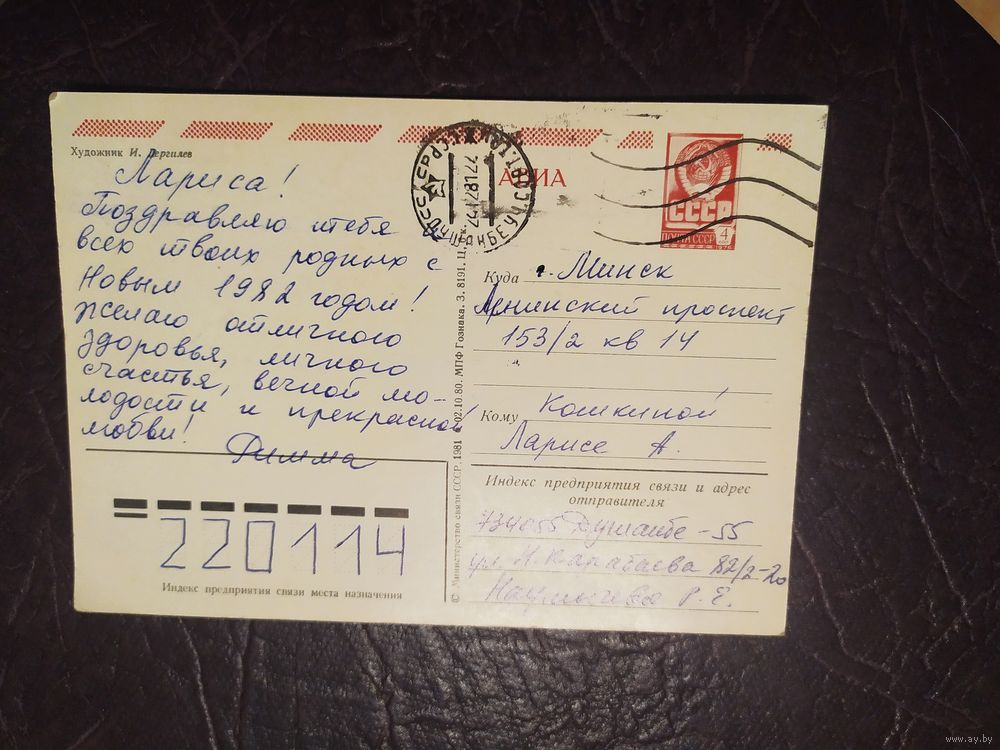 Художник И. Дергилев
Лариса!
Поздравляю тебя
всех твоих родных с
Новым 1982 годом!
Желаю отличного
здоровья, личного
счастья, вечной мо-
лодости и прекрасной
любви!
Римма
220114
Индекс предприятия связи места назначения
© Министерство связи СССР. 1981 02.10.80. МПФ Гознака. З. 8191. Ц.
АВИА
СССР
ПОЧТА СССР
4
1976
Куда г. Минск
Ленинский проспект
153/2 кв 14
Кому Кошкиной
Ларисе А.
Индекс предприятия связи и адрес
отправителя
734055 Душанбе-55
ул. Н. Карабаева 82/2-20
Р. Е.
www.ay.by